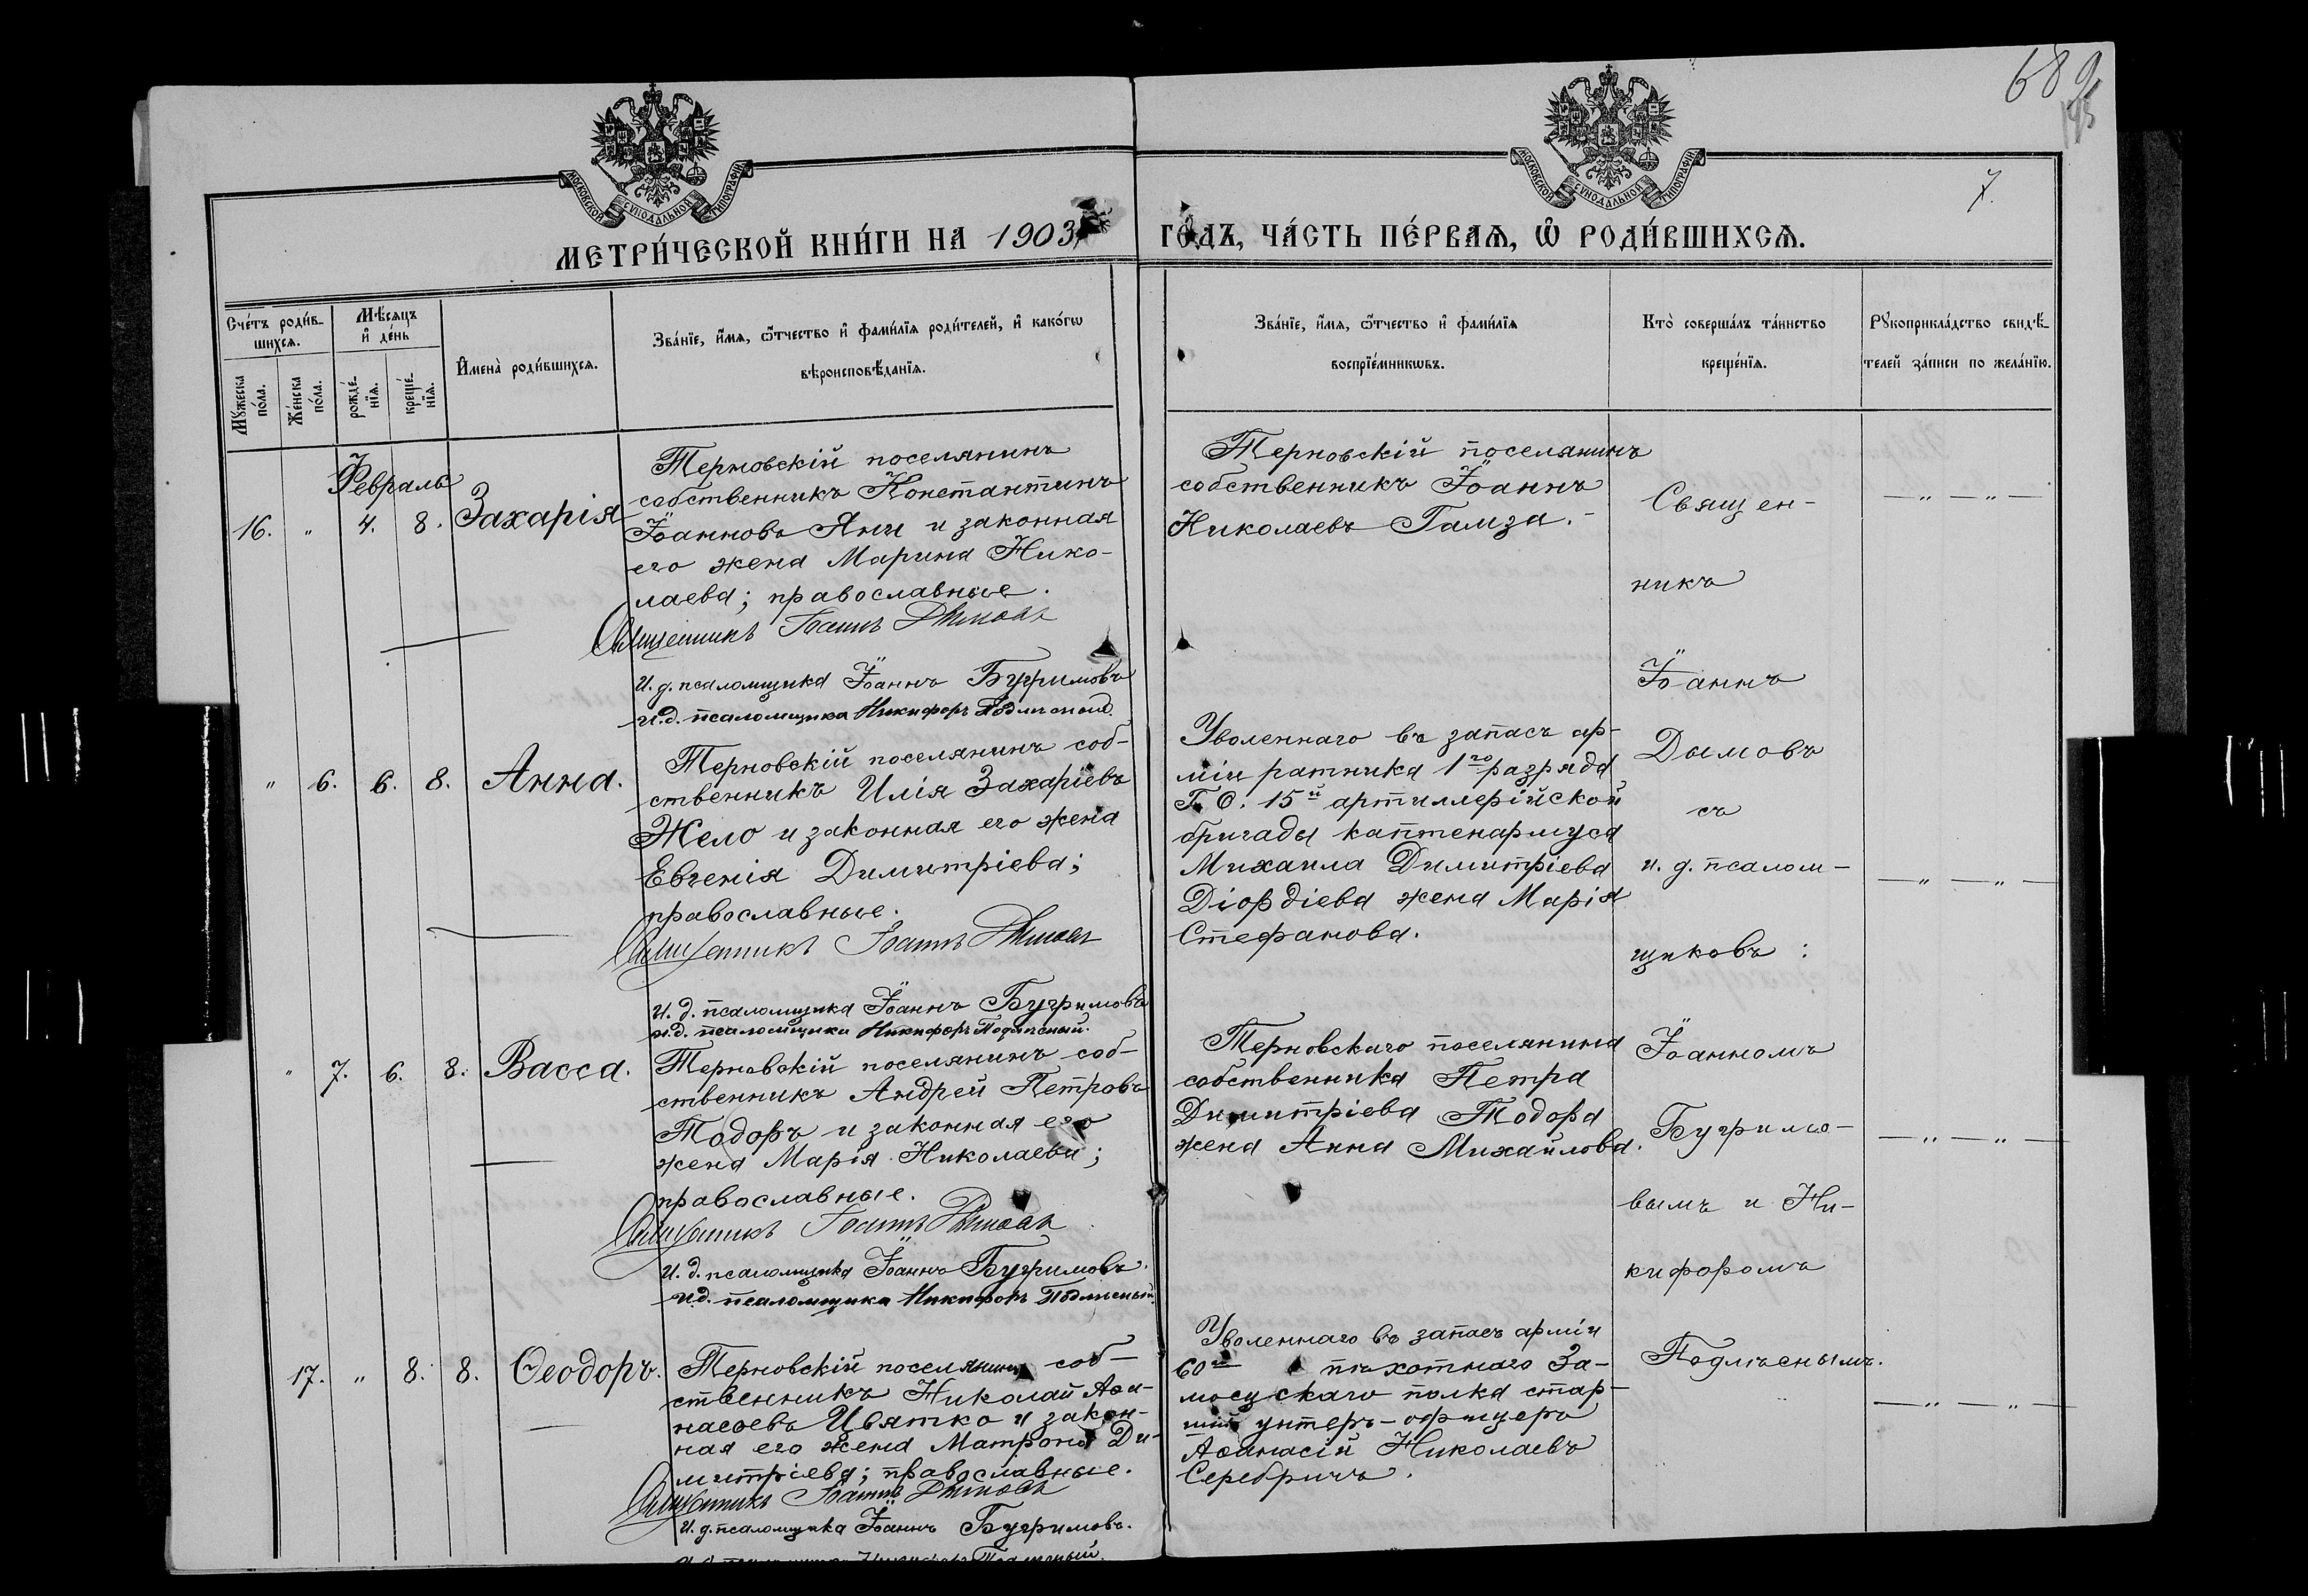 689
145
7.
МОСКОВСКОЙ СУНОДАЛЬНОЙ ТИПОГРАФІИ
МОСКОВСКОЙ СУНОДАЛЬНОЙ ТИПОГРАФІИ
МЕТРИ́ЧЕСКОЙ КНИ́ГИ НА 1903 ГО́ДЪ, ЧА́СТЬ ПЕ́РВАѦ, Ѡ РОДИ́ВШИХСѦ.
Сче́тъ роди́в-
шихсѧ.
Мꙋ́жеска
по́ла.
Же́нска
по́ла.
Мѣ́сѧцъ
и҆ де́нь
рожде́-
нїѧ.
креще́-
нїѧ.
И҆мена̀ роди́вшихсѧ.
Зва́нїе, и҆́мѧ, ѻ҆́тчество и҆ фами́лїѧ роди́телей, и҆ како́гѡ
вѣроисповѣ́данїѧ.
Зва́нїе, и҆́мѧ, ѻ҆́тчество и҆ фами́лїѧ
воспрїе́мникѡвъ.
Кто̀ соверша́лъ та́инство
креще́нїѧ.
Рꙋкоприкла́дство свидѣ́-
телей за́писи по жела́нїю.
Февраль
16. " 4. 8. Захарія
Терновскій поселянинъ
собственникъ Константинъ
Іоанновъ Яни и законная
его жена Марина Нико-
лаева; православные.
Священникъ Іоаннъ Дымовъ
И. д. псаломщика Іоаннъ Бугримовъ
и.д. псаломщика Никифоръ Подлѣсный.
Терновскій поселянинъ
собственникъ Іоаннъ
Николаевъ Гамза.-
— " — " —
" 6. 6. 8. Анна.
Терновскій поселянинъ соб-
ственникъ Илія Захаріевъ
Жело и законная его жена
Евгенія Димитріева;
православные.
Священникъ Іоаннъ Дымовъ
И. д. псаломщика Іоаннъ Бугримовъ
и.д. псаломщика Никифоръ Подлѣсный.
Уволеннаго въ запасъ ар-
міи ратника 1го разряда
15й артиллерійской
бригады каптенармуса
Михаила Димитріева
Діордіева жена Марія
Стефанова.
— " — " —
" 7. 6. 8. Васса.
Терновскій поселянинъ соб-
ственникъ Андрей Петровъ
Тодоръ и законная его
жена Марія Николаева;
православные.
Священникъ Іоаннъ Дымовъ
И. д. псаломщика Іоаннъ Бугримовъ.
И.д. псаломщика Никифоръ Подлѣсный.
Терновскаго поселянина
собственника Петра
Димитріева Тодора
жена Анна Михайлова.
— " — " —
17. " 8. 8. Ѳеодоръ.
Терновскій поселянинъ соб-
ственникъ Николай Аѳа-
насьевъ Цвятко и закон-
ная его жена Матрона Ди-
митріева; православные.
Священникъ Іоаннъ Дымовъ
И. д. псаломщика Іоаннъ Бугримовъ.
И. д. псаломщика Никифоръ Подлѣсный.
Уволеннаго въ запасъ арміи
60го пѣхотнаго За-
мосцскаго полка стар-
шій унтеръ-офицеръ
Аѳанасій Николаевъ
Серебричъ.
— " — " —
Священ-
никъ
Іоаннъ
Дымовъ
съ
и. д. псалом-
щиковъ:
Іоанномъ
Бугримо-
вымъ и Ни-
кифоромъ
Подлѣснымъ.